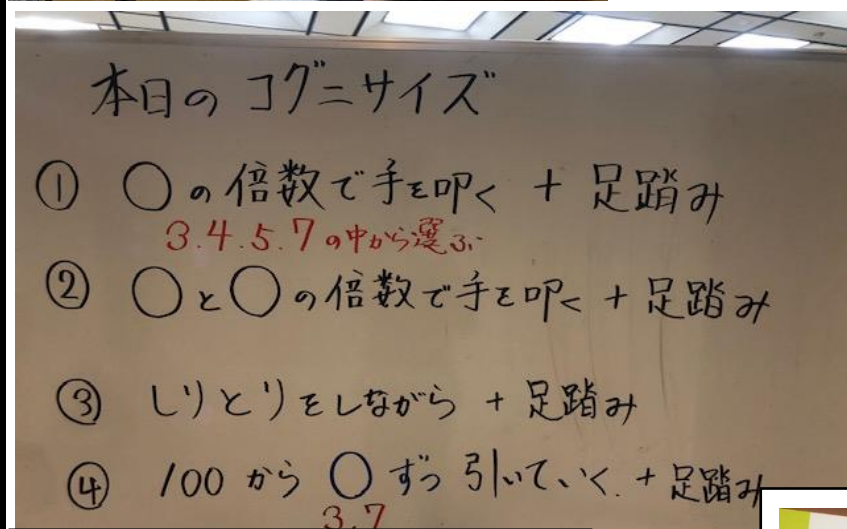 本日の コグニサイズ
① ○の倍数で手を叩く + 足踏み
3.4.5.7の中から選ぶ
② ○と○の倍数で手を叩く + 足踏み
③ しりとりをしながら + 足踏み
④ 100から ○ずつ引いていく. + 足踏み
3.7